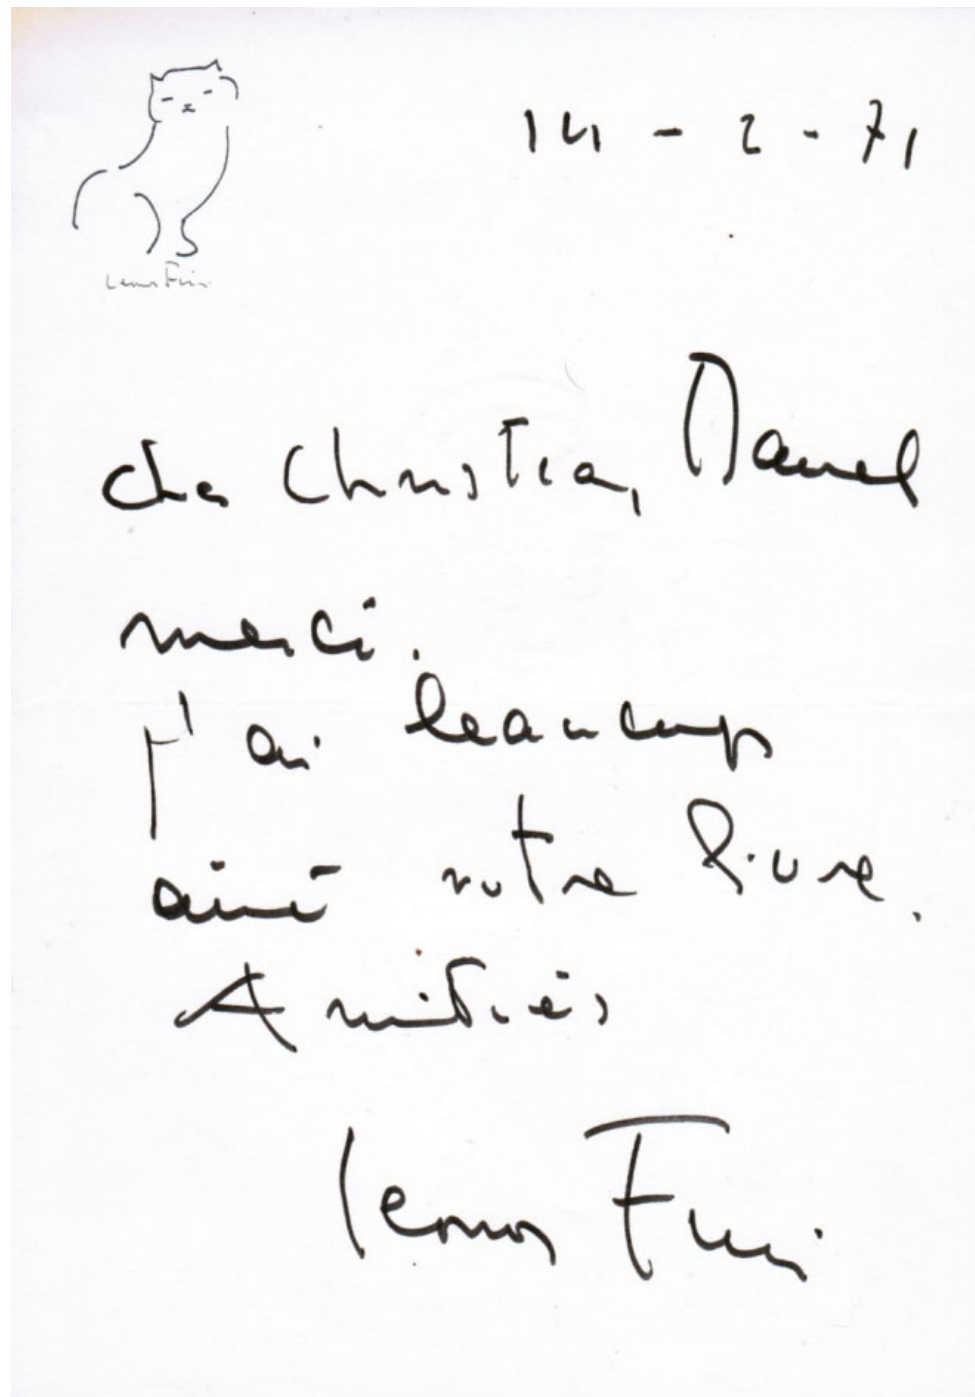 14 - 2 - 71
Leonor Fini
cher Christian,
merci.
j'ai beaucoup
aimé votre livre.
Amitiés
Leonor Fini